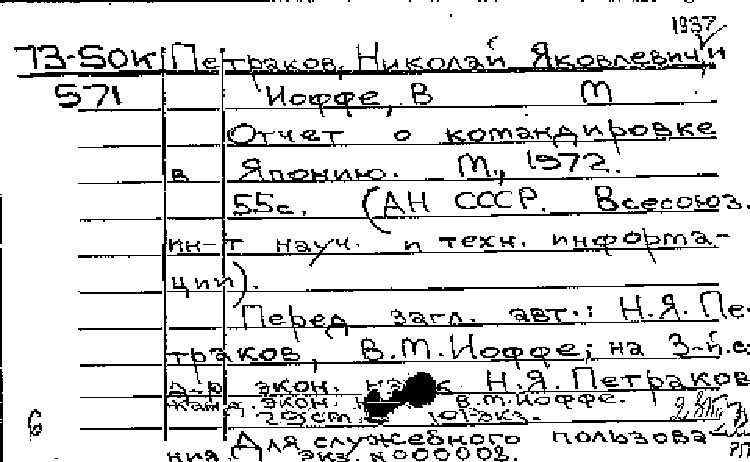 1937
73-50К Петраков, Николай Яковлевич и
571 Иоффе, В М
Отчет о командировке
в Японию. М., 1972.
55с. (АН СССР. Всесоюз.
ин-т науч. и техн. информа-
ции).
Перед загл. авт.: Н.Я. Пе-
траков, В.М. Иоффе; на 3-й с.
д-р экон. Н.Я. Петраков
канд. экон. В.М. Иоффе.
экз.
6 Для служебного пользова-
ния. экз. N000002.